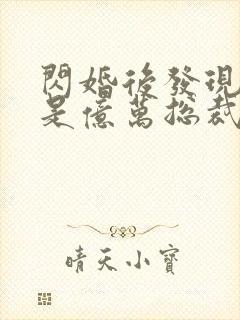 閃婚後發現
是億萬總裁
晴天小寶